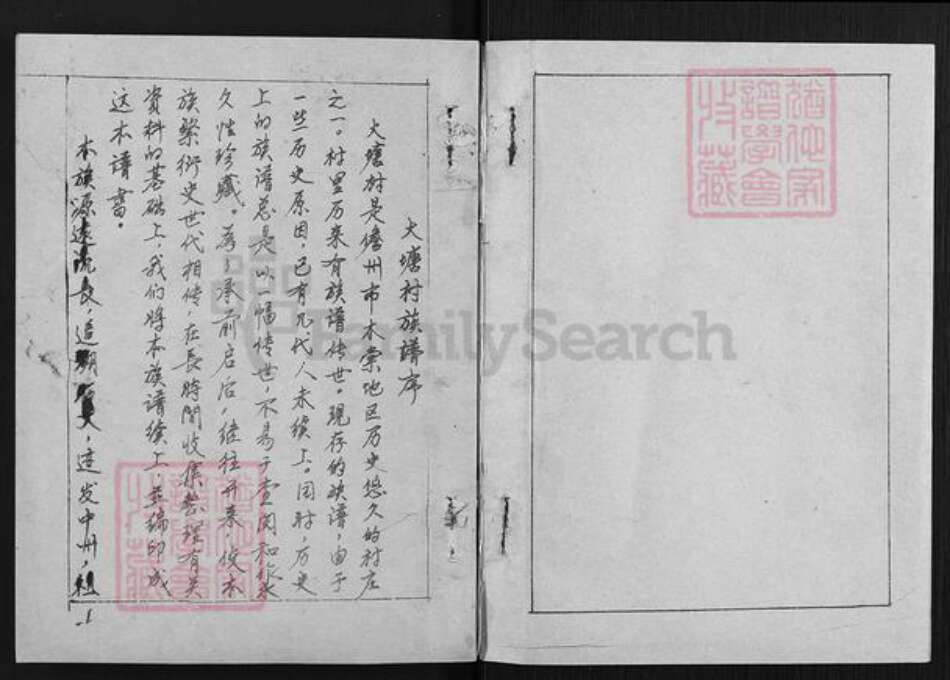 大塘村族譜序
大塘村是儋州市木棠地区历史悠久的村庄
之一。村里历来有族譜传世。现存的族譜，由于
一些历史原因，已有几代人未续上。同时，历史
上的族譜总是以一幅传世，不易于查阅和永
久性珍藏。为了承前启后，继往开来，使本
族繁衍史世代相传，在長時間收集整理有关
資料的基础上，我们将本族譜续上，並编印成
这本譜書。
本族源远流长，追溯，
发中州，祖
FamilySearch
譜學會
收藏